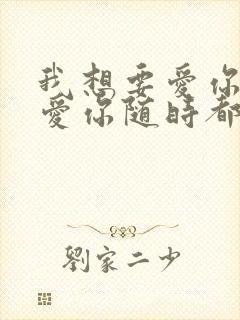 我想要愛你
愛你隨時都
劉家二少